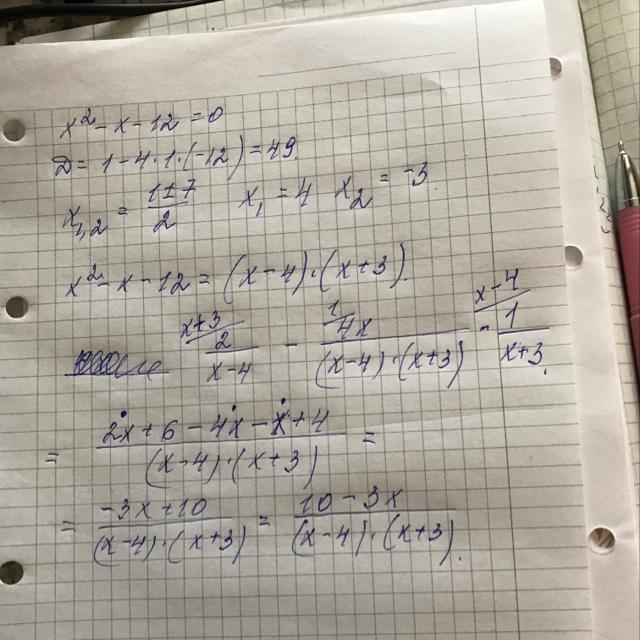 x² - x - 12 = 0
D = 1 - 4 · 1 · (-12) = 49.
x₁,₂ = (1 ± 7)/2    x₁ = 4    x₂ = -3
x² - x - 12 = (x - 4) · (x + 3).
x+3/ 2/(x-4) - 1/ 4x/((x-4) · (x+3)) - x-4/ 1/(x+3).
= (2x + 6 - 4x - x + 4)/((x-4) · (x+3)) =
= (-3x + 10)/((x-4) · (x+3)) = (10 - 3x)/((x-4) · (x+3)).